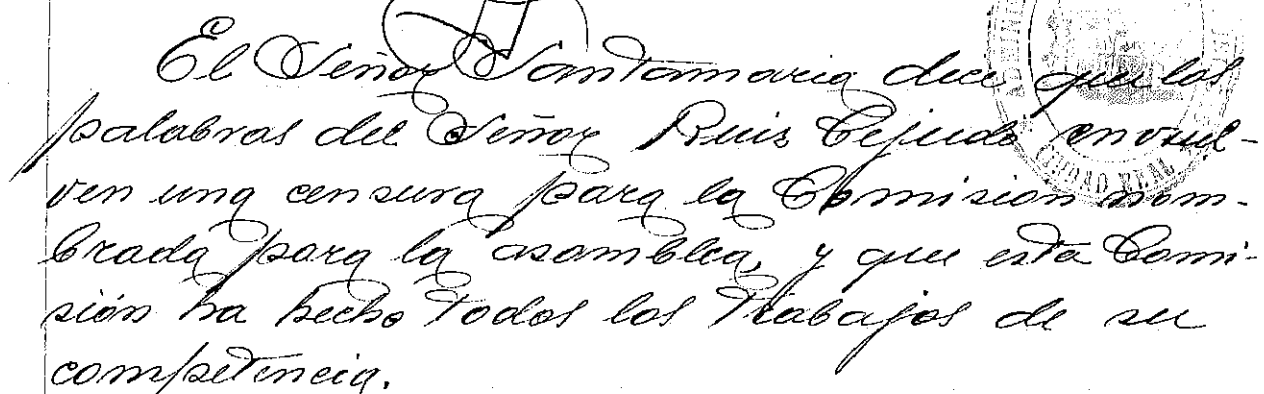 El Señor Santamaria dice que las
palabras del Señor Ruis Cejudo envuel-
ven una censura para la Comision nom-
brada para la asamblea, y que esta Comi-
sión ha hecho todos los trabajos de su
competencia.
CIUDAD REAL